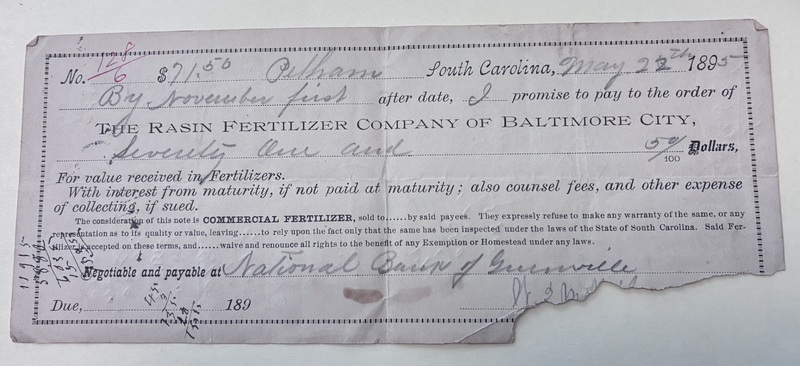 No. 128/6 $71.50 Pelham South Carolina, May 22th 1895
By November first after date, I promise to pay to the order of
THE RASIN FERTILIZER COMPANY OF BALTIMORE CITY,
Seventy One and 50/100 Dollars,
For value received in Fertilizers.
With interest from maturity, if not paid at maturity; also counsel fees, and other expense
of collecting, if sued.
The consideration of this note is COMMERCIAL FERTILIZER, sold to......by said payees. They expressly refuse to make any warranty of the same, or any
representation as to its quality or value, leaving......to rely upon the fact only that the same has been inspected under the laws of the State of South Carolina. Said Fer-
tilizer is accepted on these terms, and......waive and renounce all rights to the benefit of any Exemption or Homestead under any laws.
Negotiable and payable at National Bank of Greenville
Due, 189